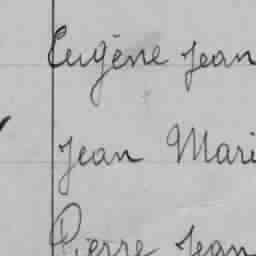 Eugène Jean
Jean Mari
Pierre Jean